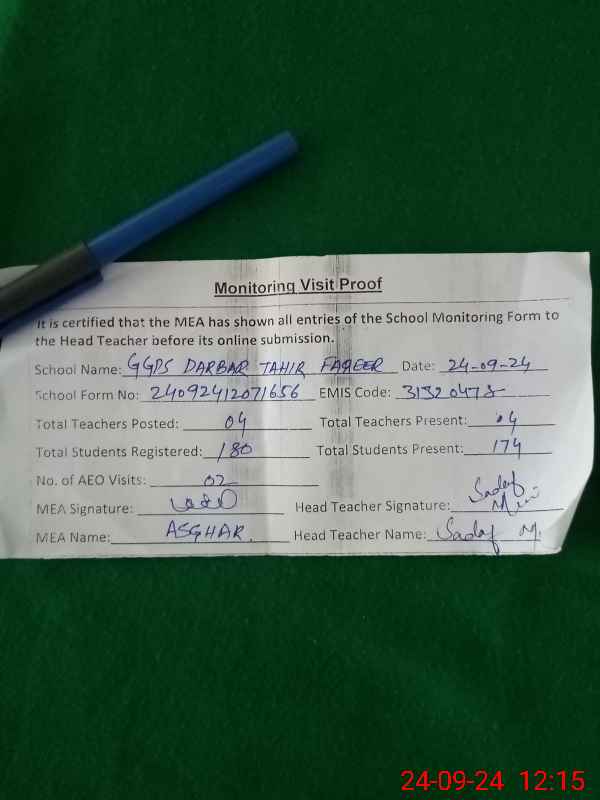 Monitoring Visit Proof
It is certified that the MEA has shown all entries of the School Monitoring Form to
the Head Teacher before its online submission.
School Name: GGPS DARBAR TAHIR FAQEER Date: 24-09-24
School Form No: 24092412071656 EMIS Code: 31320478
Total Teachers Posted: 04 Total Teachers Present: 04
Total Students Registered: 180 Total Students Present: 174
No. of AEO Visits: 02
MEA Signature: Head Teacher Signature: Sadaf
MEA Name: ASGHAR. Head Teacher Name: Sadaf M.
24-09-24 12:15